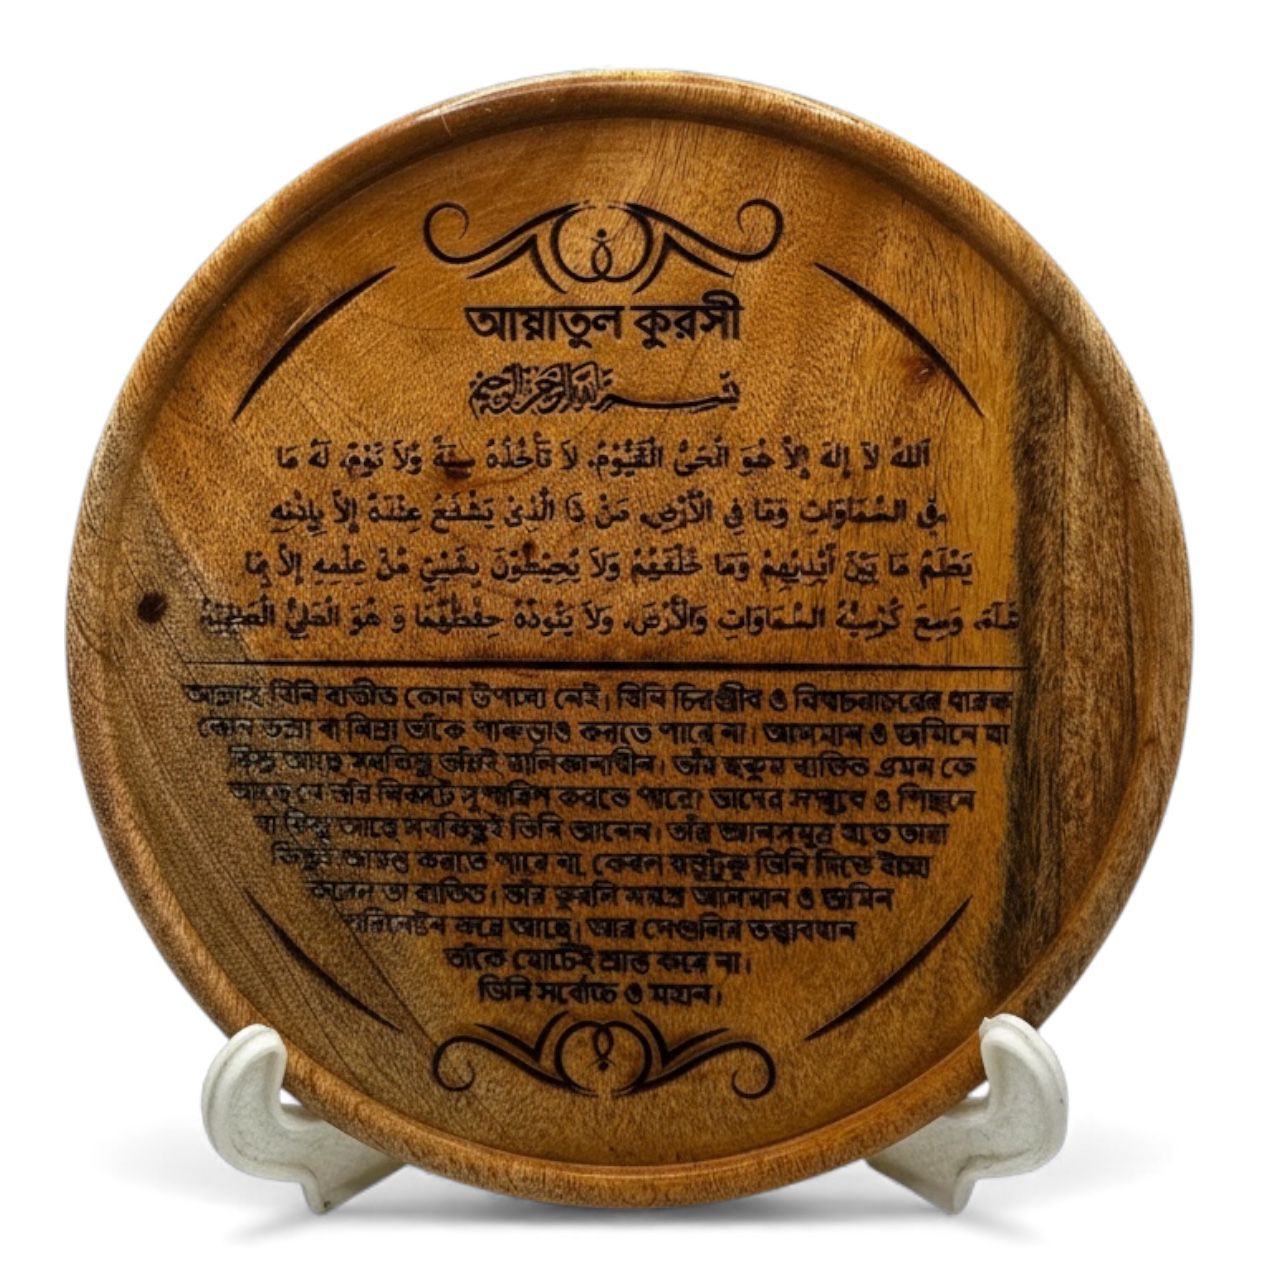 আয়াতুল কুরসী
بسم الله الرحمن الرحيم
اَللهُ لاَ إِلهَ إِلاَّ هُوَ الْحَىُّ الْقَيُّوْمُ، لاَ تَأْخُذُهُ سِنَةٌ وَّلاَ نَوْمٌ، لَهُ مَا
فِى السَّمَاوَاتِ وَمَا فِى الْأَرْضِ، مَنْ ذَا الَّذِىْ يَشْفَعُ عِنْدَهُ إِلاَّ بِإِذْنِهِ
يَعْلَمُ مَا بَيْنَ أَيْدِيْهِمْ وَمَا خَلْفَهُمْ وَلاَ يُحِيْطُوْنَ بِشَيْئٍ مِّنْ عِلْمِهِ إِلاَّ بِمَا
شَآءَ، وَسِعَ كُرْسِيُّهُ السَّمَاوَاتِ وَالْأَرْضَ، وَلاَ يَئُوْدُهُ حِفْظُهُمَا وَ هُوَ الْعَلِيُّ الْعَظِيْمُ
আল্লাহ যিনি ব্যতীত কোন উপাস্য নেই। যিনি চিরঞ্জীব ও বিশ্বচরাচরের ধারক
কোন তন্দ্রা বা নিদ্রা তাঁকে পাকড়াও করতে পারে না। আসমান ও জমিনে যা
কিছু আছে সবকিছু তাঁরই মালিকানাধীন। তাঁর হুকুম ব্যতিত এমন কে
আছে যে তাঁর নিকটে সুপারিশ করতে পারে? তাদের সম্মুখে ও পিছনে
যা কিছু আছে সবকিছুই তিনি জানেন। তাঁর জ্ঞানসমুদ্র হতে তারা
কিছুই আয়ত্ত করতে পারে না, কেবল যতটুকু তিনি দিতে ইচ্ছা
করেন তা ব্যতিত। তাঁর কুরসি সমগ্র আসমান ও জমিন
পরিবেষ্টন করে আছে। আর সেগুলির তত্ত্বাবধান
তাঁকে মোটেই শ্রান্ত করে না।
তিনি সর্বোচ্চ ও মহান।